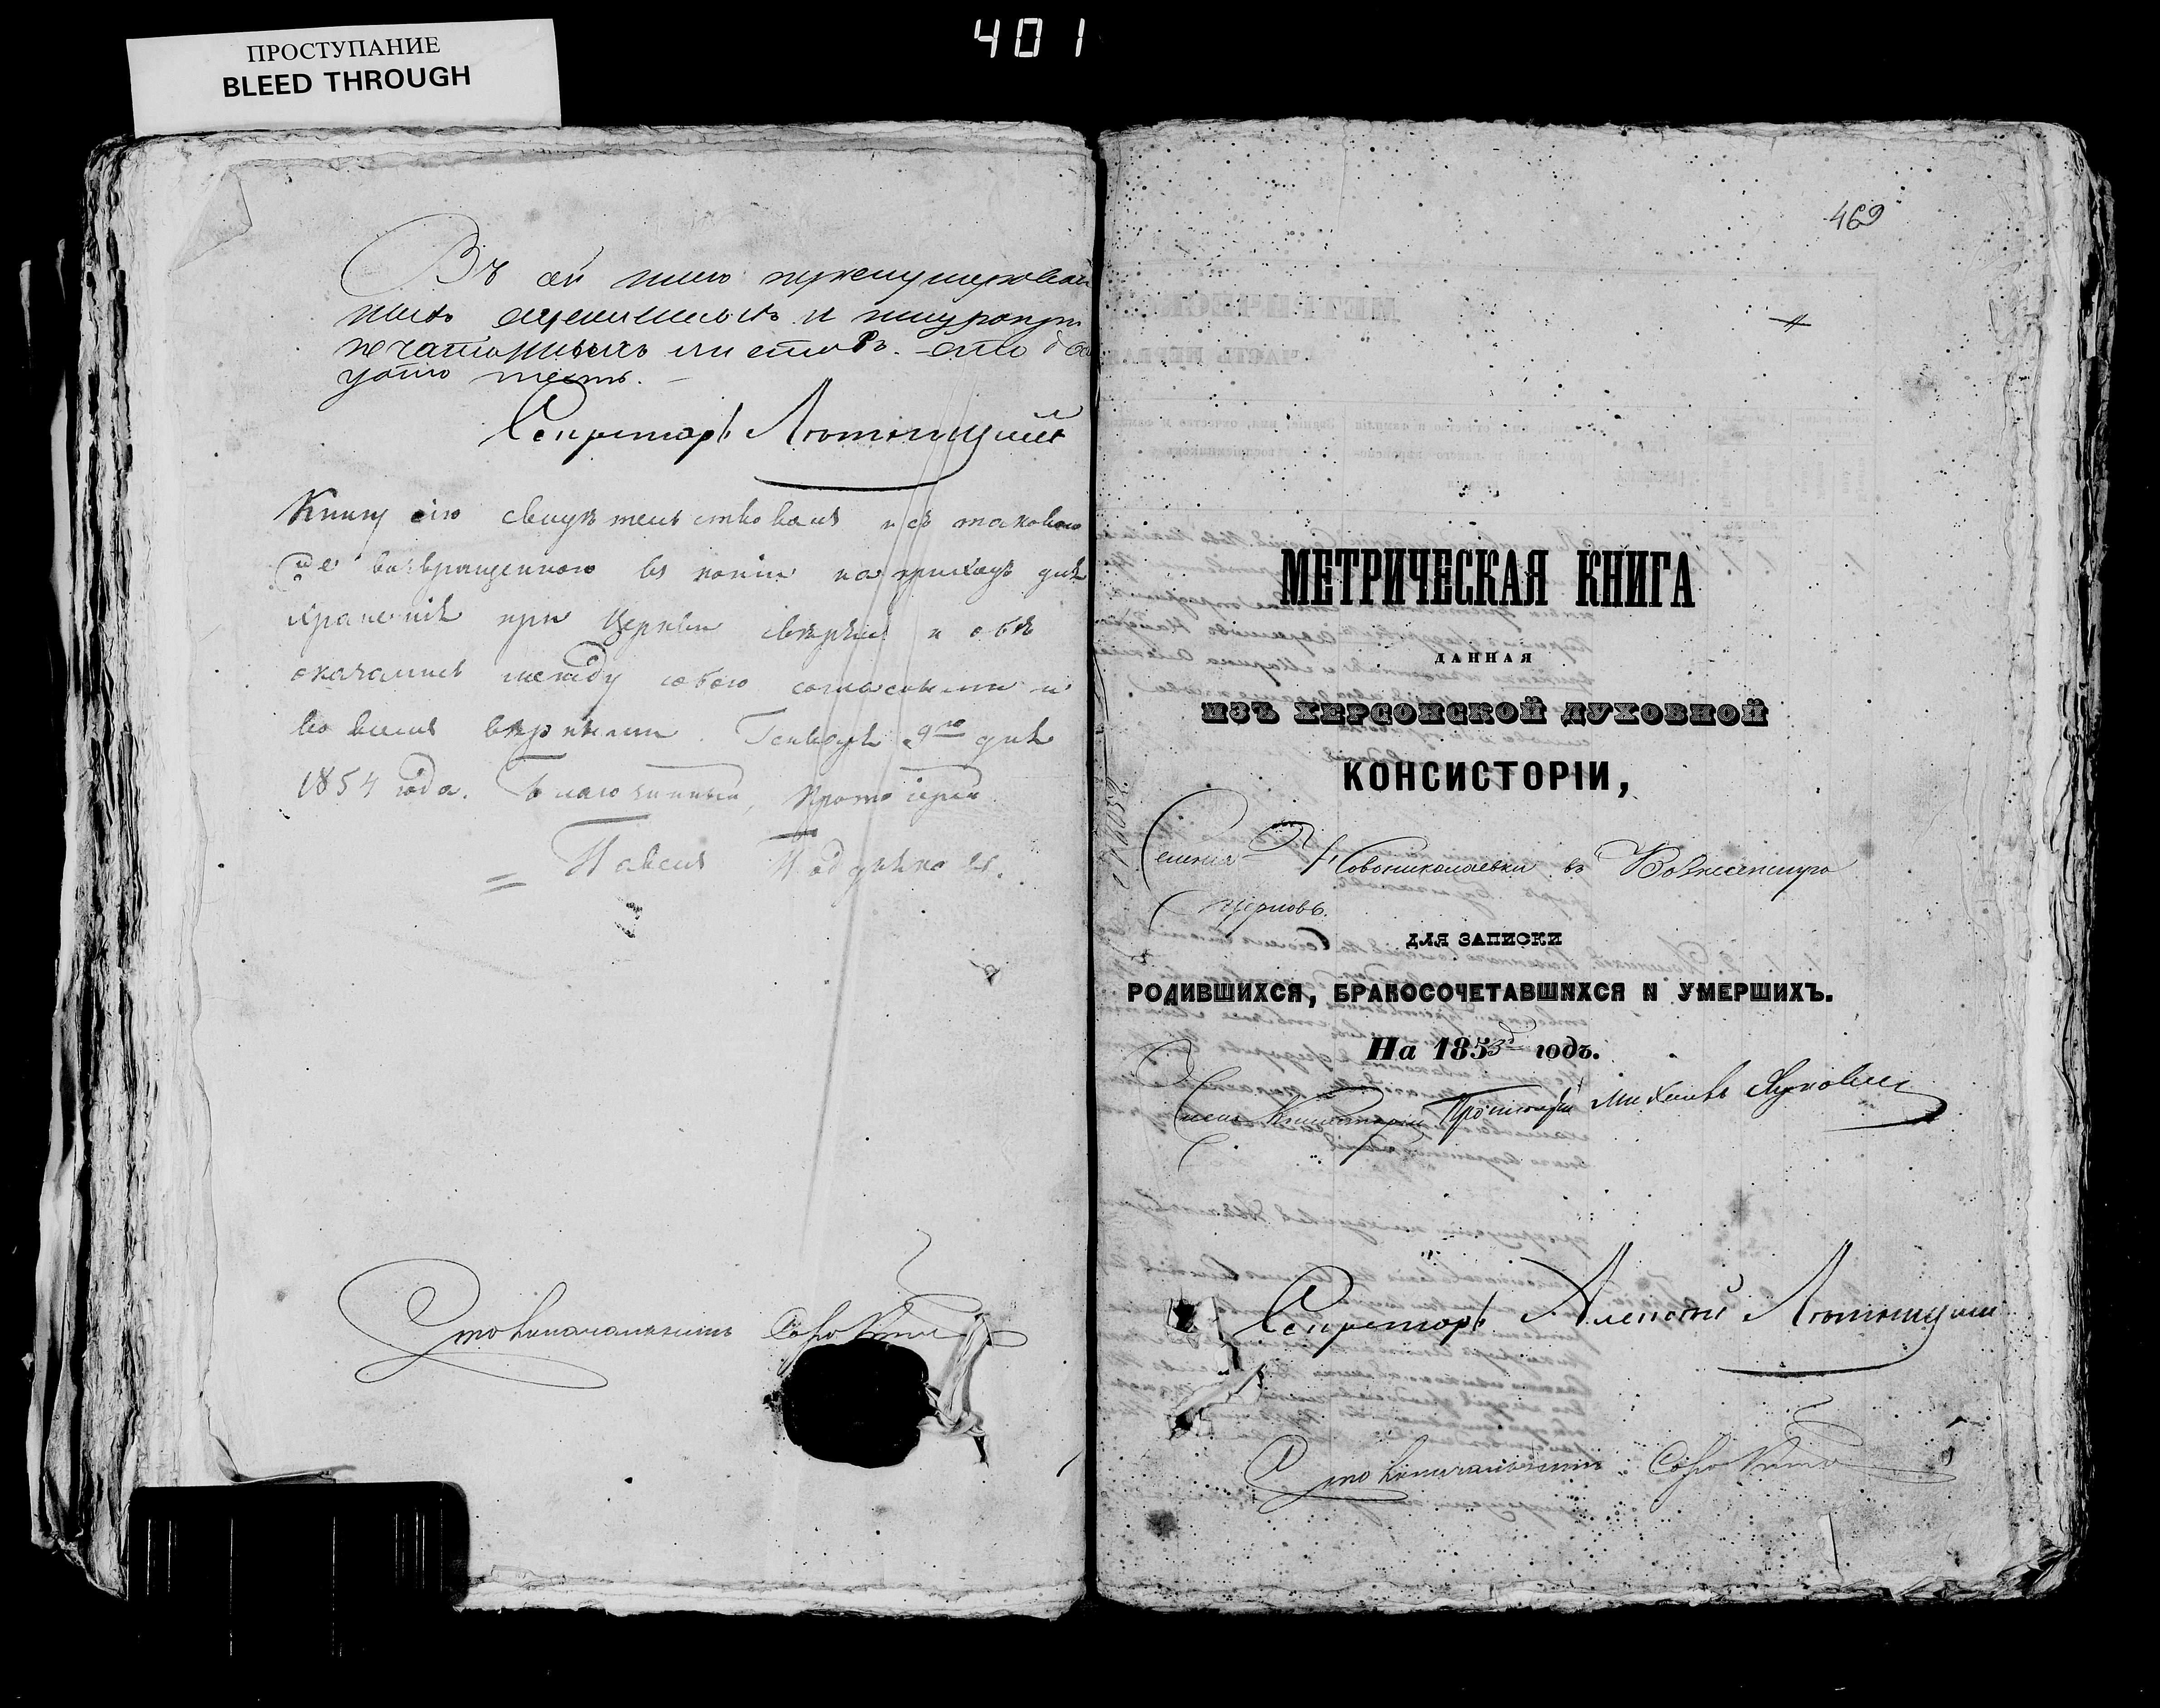 ПРОСТУПАНИЕ
BLEED THROUGH
401
Въ сей книгѣ пронумерован
ныхъ скрепленныхъ и шнуропри
печатанныхъ листовъ. – сто два
цать шесть. –
Секретарь
Книгу сію свидѣтельствовалъ и съ таковою
же возвращенною въ копіи на приходъ для
храненія при Церкви свѣрялъ и обѣ
оказались между собою согласными и
во всемъ вѣрными. Генваря 9го дня
1854 года. Благочинный, Протоіерей
Павелъ
Столоначальникъ
469
МЕТРИЧЕСКАЯ КНИГА
ДАННАЯ
ИЗЪ ХЕРСОНСКОЙ ДУХОВНОЙ
КОНСИСТОРІИ,
Селенія Новониколаевки въ Вознесенскую
Церковь.
ДЛЯ ЗАПИСКИ
РОДИВШИХСЯ, БРАКОСОЧЕТАВШИХСЯ И УМЕРШИХЪ.
На 1853й годъ.
Членъ Консисторіи Протоіерей Михаилъ
Секретарь Алексѣй
Столоначальникъ